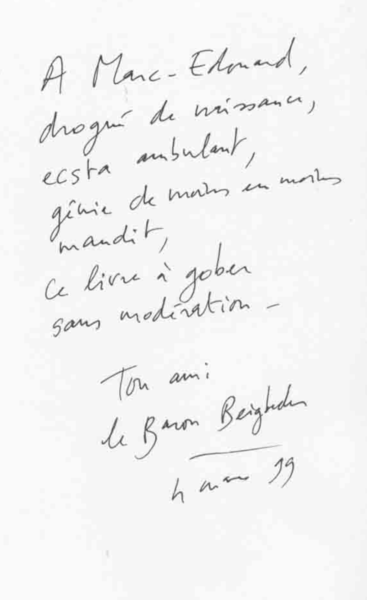 A Marc-Edouard,
drogué de naissance,
ecsta ambulant,
génie de moins en moins
maudit,
ce livre à gober
sans modération -
Ton ami
le Baron Beigbeder
4 mars 99